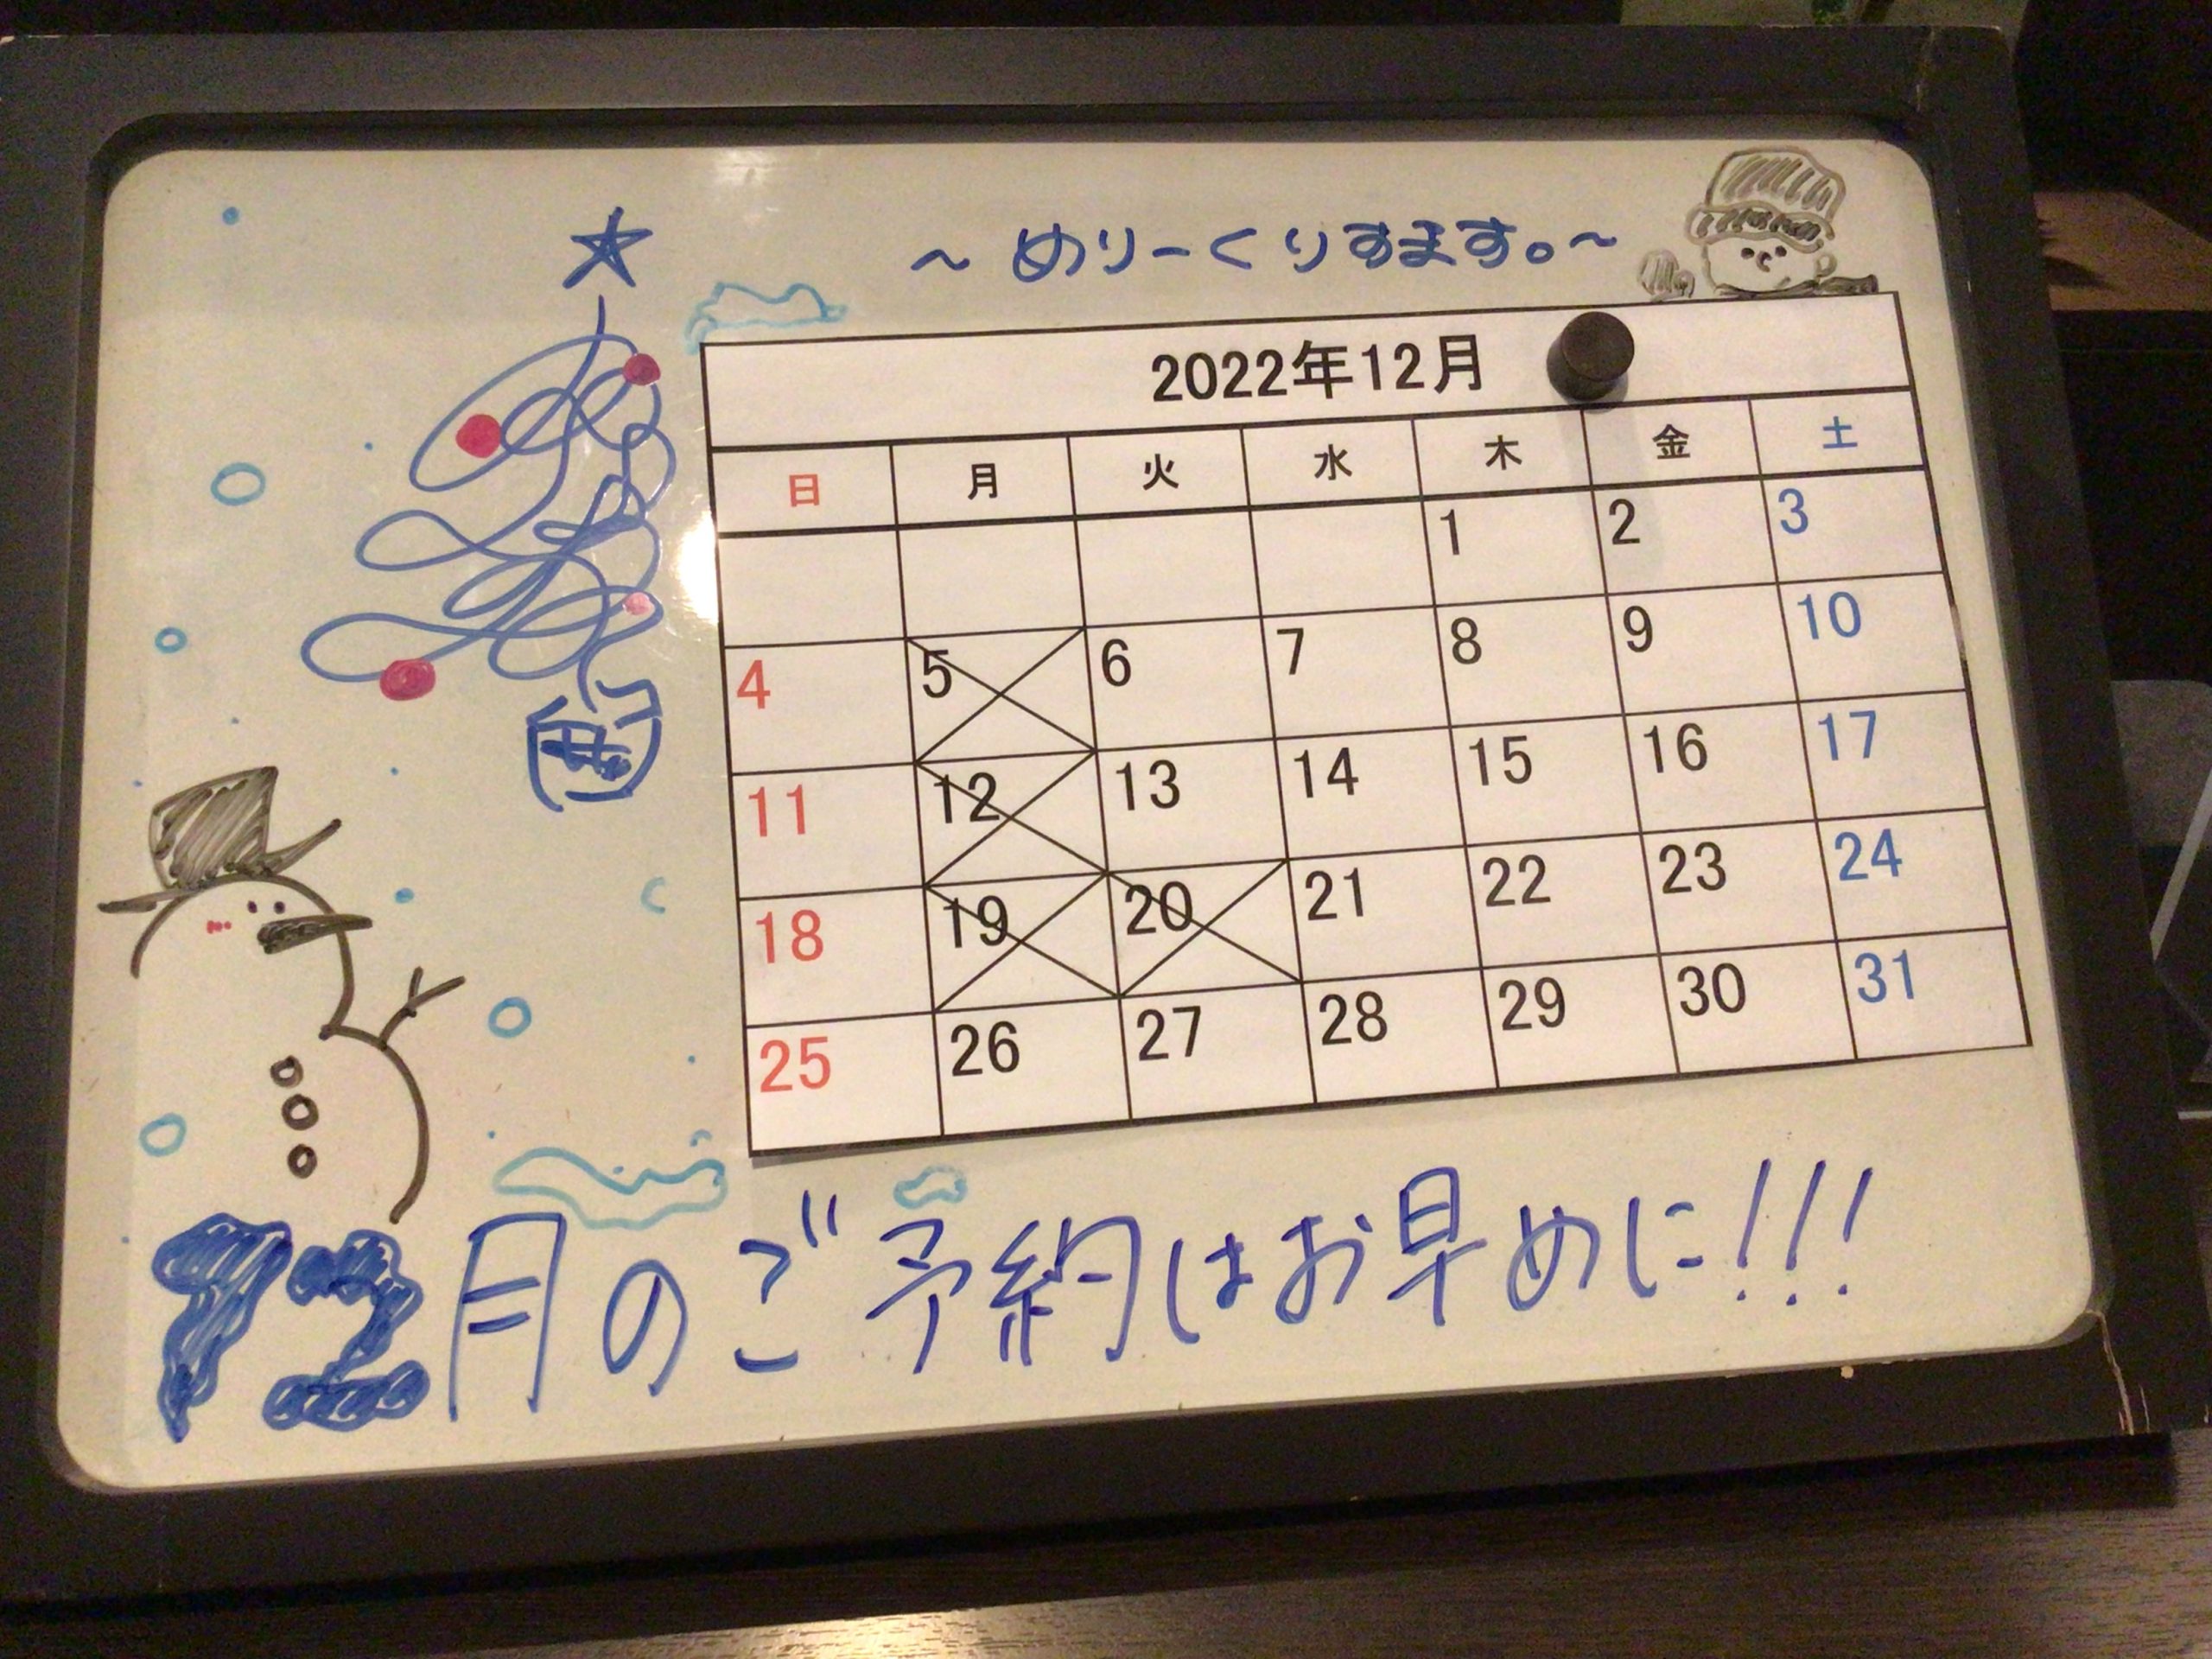 ～めりーくりすます。～
2022年12月
日 月 火 水 木 金 土
1 2 3
4 5 6 7 8 9 10
11 12 13 14 15 16 17
18 19 20 21 22 23 24
25 26 27 28 29 30 31
12月のご予約はお早めに!!!